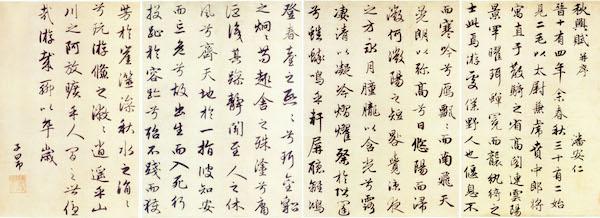 秋興賦 并序
潘安仁
晉十有四年余春秋三十有二始
見二毛以太尉掾兼虎賁中郎將
寓直于散騎之省高閣連雲陽
景罕曜珥蟬冕而襲紈綺之
士此焉游處僕野人也偃息不
而寒吟兮鴈飄飄而南飛天
晃朗以彌高兮日悠陽而浸
微何微陽之短晷覺涼夜
之方永月朣朧以含光兮露
凄清以凝冷熠燿粲於階闥
兮蟋蟀鳴乎軒屏聽離鴻
登春臺之熙熙兮珥金貂
之炯炯苟趣舍之殊塗兮庸
詎識其躁靜聞至人之休
風兮齊天地於一指彼知安
而忘危兮故出生而入死行
投趾於容跡兮殆不踐而獲
芳於崖澨澡秋水之涓涓
兮玩游儵之潎潎逍遙乎山
川之阿放曠乎人間之世優
哉游哉聊以卒歲
子昂